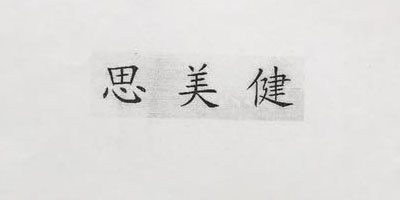 思美健